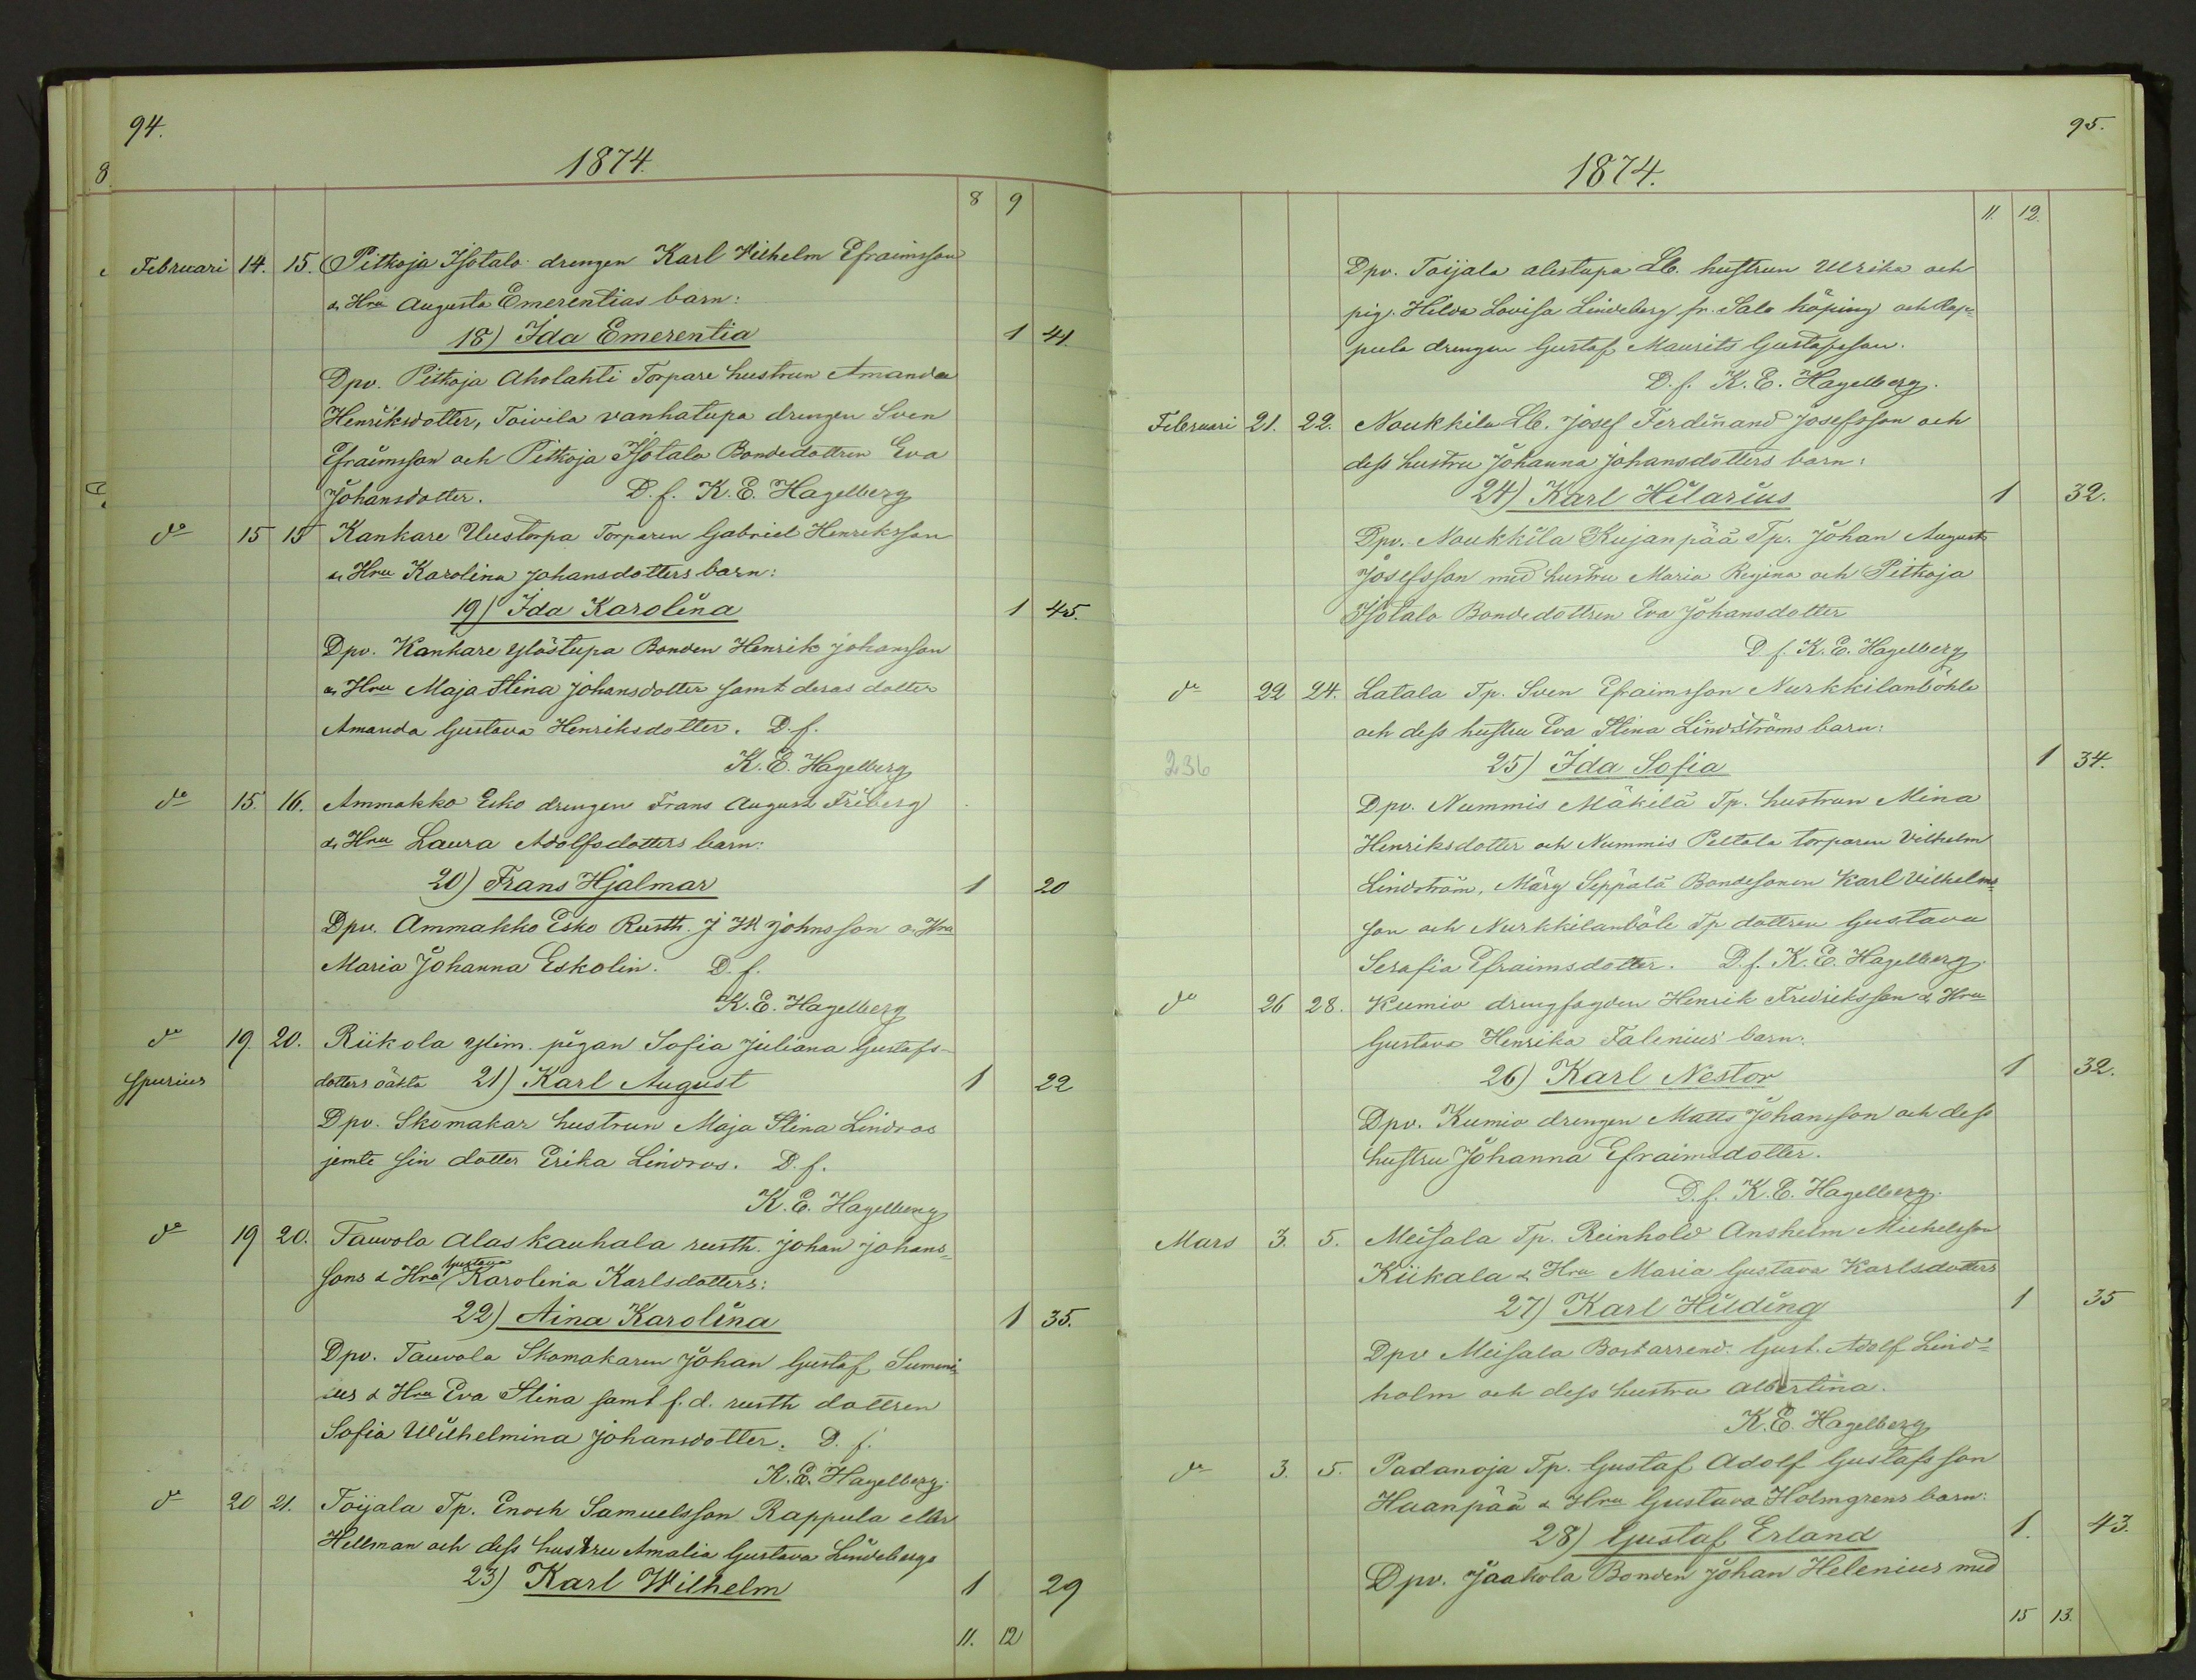 94.
8
1874.
8 9
Februari 14. 15. Pitkoja Isotalo drengen Karl Wilhelm Efraimsson
& Hru Augusta Emerentias barn:
18) Ida Emerentia 1 41.
Dpv. Pitkoja Aholahti Torpare hustrun Amanda
Henriksdotter, Toivila vanhatupa drengen Sven
Efraimsson och Pitkoja Isotalo Bondedottren Eva
Johansdotter. D. f. K. E. Hagelberg
do 15 15 Kankare Uustorpa Torparen Gabriel Henriksson
& Hru Karolina Johansdotters barn:
19) Ida Karolina 1 45.
Dpv. Kankare Ylöstupa Bonden Henrik Johansson
& Hru Maja Stina Johansdotter samt deras dotter
Amanda Gustava Henriksdotter. D. f.
K. E. Hagelberg
do 15. 16. Ammakko Esko drengen Frans August Friberg
& Hru Laura Adolfsdotters barn:
20) Frans Hjalmar 1 20
Dpv. Ammakko Esko Rusth. J Johnsson & Hru
Maria Johanna Eskolin. D. f.
K. E. Hagelberg
do 19. 20. Riikola Ylim. pigan Sofia Juliana Gustafs-
spurius dotters oäkta 21) Karl August 1 22
Dpv. Skomakar hustrun Maja Stina Lindros
jemte sin dotter Erika Lindros. D. f.
K. E. Hagelberg
do 19 20. Tauvola Alaskauhala rusth. Johan Johans-
sons & Hru Gustava Karolina Karlsdotters:
22) Aina Karolina 1 35.
Dpv. Tauvola Skomakaren Johan Gustaf Sumeni-
us & Hru Eva Stina samt f. d. rusth dottren
Sofia Wilhelmina Johansdotter. D. f.
K. E. Hagelberg.
do 20 21. Toijala Tp. Enoch Samuelsson Rappula eller
Hellman och dess hustru Amalia Gustava Lindebergs
23) Karl Wilhelm 1 29
11. 12
95.
1874.
11. 12.
Dpv. Toijala alestupa Lb. hustrun Ulrika och
pig. Hilda Lovisa Lindeberg fr. Salo köping och Rap-
pula drengen Gustaf Maurits Gustafsson.
D. f. K. E. Hagelberg.
Februari 21. 22. Noukkila Lb. Josef Ferdinand Josefsson och
dess hustru Johanna Johansdotters barn:
24) Karl Hilarius 1 32.
Dpv. Noukkila Kujanpää Tp. Johan August
Josefsson med hustru Maria Regina och Pitkoja
Isotalo Bondedottren Eva Johansdotter
D. f. K. E. Hagelberg
do 22 24. Latala Tp. Sven Efraimsson Nurkkilanböhle
och dess hustru Eva Stina Lindströms barn:
236 25) Ida Sofia 1 34.
Dpv. Nummis Mäkilä Tp. hustrun Mina
Henriksdotter och Nummis Peltola torparen Vilhelm
Lindström, Märy Seppälä Bondesonen Karl Vilhelms-
son och Nurkkilanböle Tp dottren Gustava
Serafia Efraimsdotter. D. f. K. E. Hagelberg.
do 26 28. Kumio drengfogden Henrik Fredriksson & Hru
Gustava Henrika Falenius' barn:
26) Karl Nestor 1 32.
Dpv. Kumio drengen Matts Johansson och dess
hustru Johanna Efraimsdotter.
D. f. K. E. Hagelberg.
Mars 3. 5. Meisala Tp. Reinhold Anshelm Michelsson
Kiikala & Hru Maria Gustava Karlsdotters
27) Karl Hilding 1 35
Dpv Meisala Bost.arrend. Gust. Adolf Lind-
holm och dess hustru Albertina.
K. E. Hagelberg
do 3. 5. Padanoja Tp. Gustaf Adolf Gustafsson
Haanpää & Hru Gustava Holmgrens barn:
28) Gustaf Erland 1. 43.
Dpv. Jaakola Bonden Johan Helenius med
15 13.